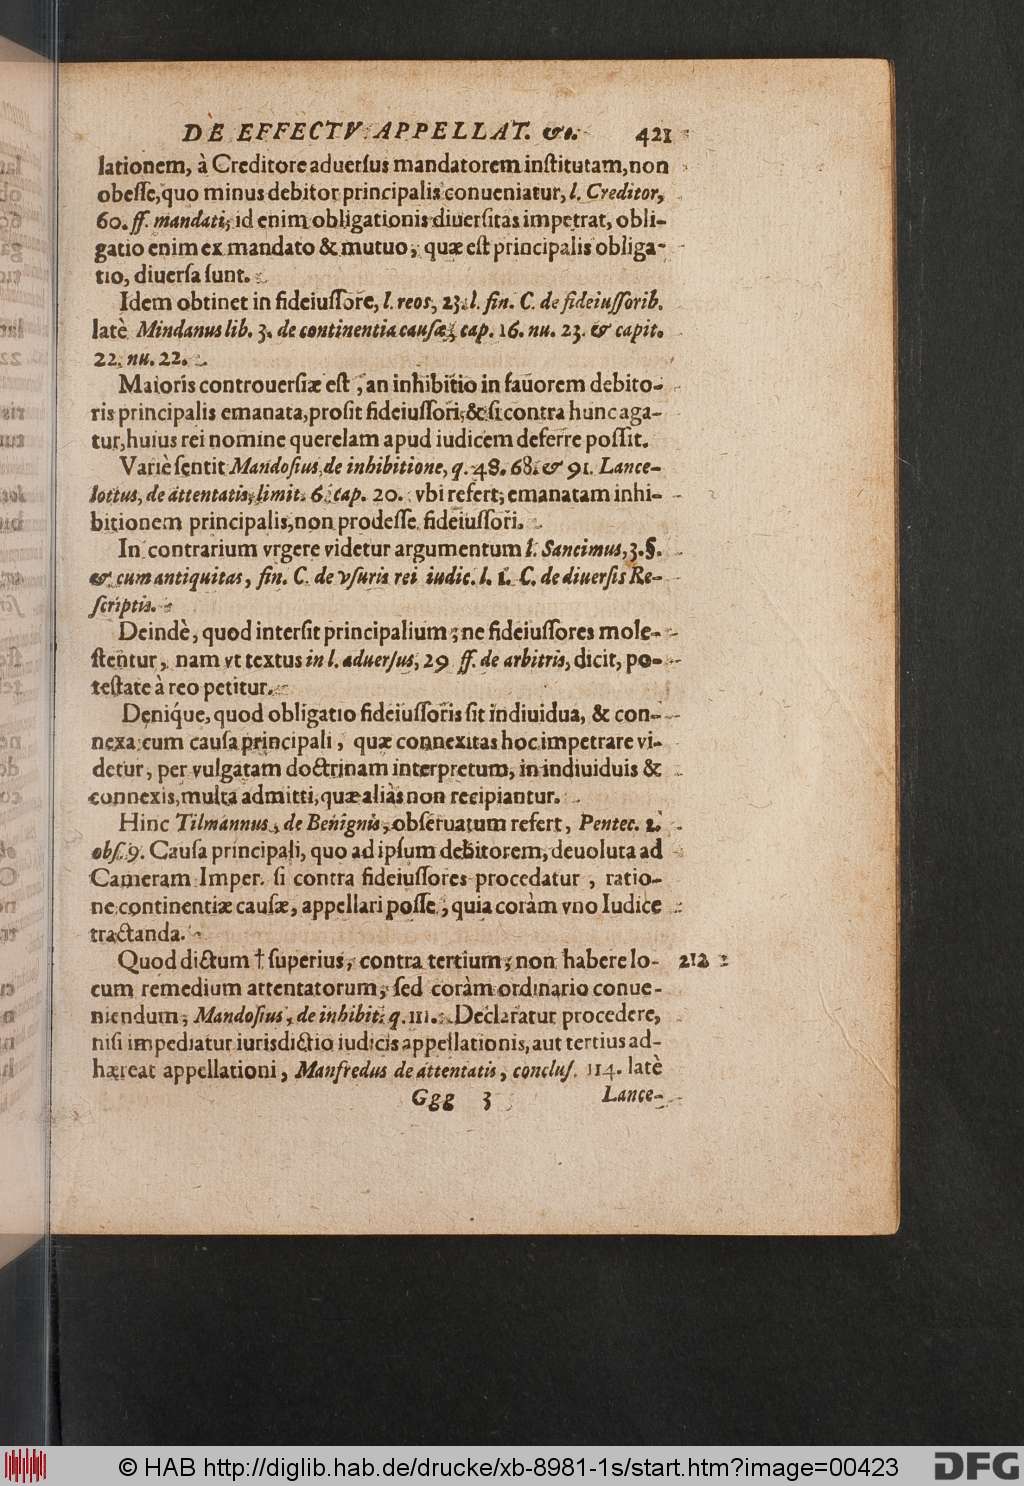 DE EFFECTV APPELLAT. &c. 421
lationem, à Creditore aduerſus mandatorem inſtitutam, non
obeſſe, quo minus debitor principalis conueniatur, l. Creditor,
60. ff. mandati, id enim obligationis diuerſitas impetrat, obli-
gatio enim ex mandato & mutuo, quæ eſt principalis obliga-
tio, diuerſa ſunt.
Idem obtinet in fideiuſſore, l. reos, 23. l. fin. C. de fideiuſſorib.
latè Mindanus lib. 3. de continentia cauſæ, cap. 16. nu. 23. & capit.
22. nu. 22.
Maioris controuerſiæ eſt, an inhibitio in fauorem debito-
ris principalis emanata, proſit fideiuſſori, & ſi contra hunc aga-
tur, huius rei nomine querelam apud iudicem deferre poſſit.
Variè ſentit Mandoſius, de inhibitione, q. 48. 68. & 91. Lance-
lottus, de attentatis, limit. 6. cap. 20. vbi refert, emanatam inhi-
bitionem principalis, non prodeſſe fideiuſſori.
In contrarium vrgere videtur argumentum l. Sancimus, 3. §.
& cum antiquitas, fin. C. de vſuris rei iudic. l. 1. C. de diuerſis Re-
ſcriptis.
Deindè, quod interſit principalium, ne fideiuſſores mole-
ſtentur, nam vt textus in l. aduerſus, 29 ff. de arbitris, dicit, po-
teſtate à reo petitur.
Deniq́ue, quod obligatio fideiuſſoris ſit indiuidua, & con-
nexa cum cauſa principali, quæ connexitas hoc impetrare vi-
detur, per vulgatam doctrinam interpretum, in indiuiduis &
connexis, multa admitti, quæ aliàs non recipiantur.
Hinc Tilmannus, de Benignis, obſeruatum refert, Pentec. 1.
obſ. 9. Cauſa principali, quo ad ipſum debitorem, deuoluta ad
Cameram Imper. ſi contra fideiuſſores procedatur, ratio-
ne continentiæ cauſæ, appellari poſſe, quia coràm vno Iudice
tractanda.
Quod dictum † ſuperius, contra tertium, non habere lo- 212
cum remedium attentatorum, ſed coràm ordinario conue-
niendum, Mandoſius, de inhibit. q. 111. Declaratur procedere,
niſi impediatur iurisdictio iudicis appellationis, aut tertius ad-
hæreat appellationi, Manfredus de attentatis, concluſ. 114. latè
Ggg 3 Lance-
© HAB http://diglib.hab.de/drucke/xb-8981-1s/start.htm?image=00423
DFG